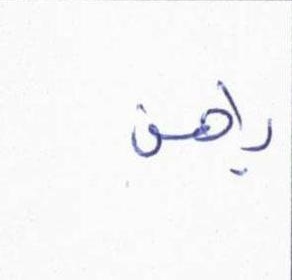 راهن